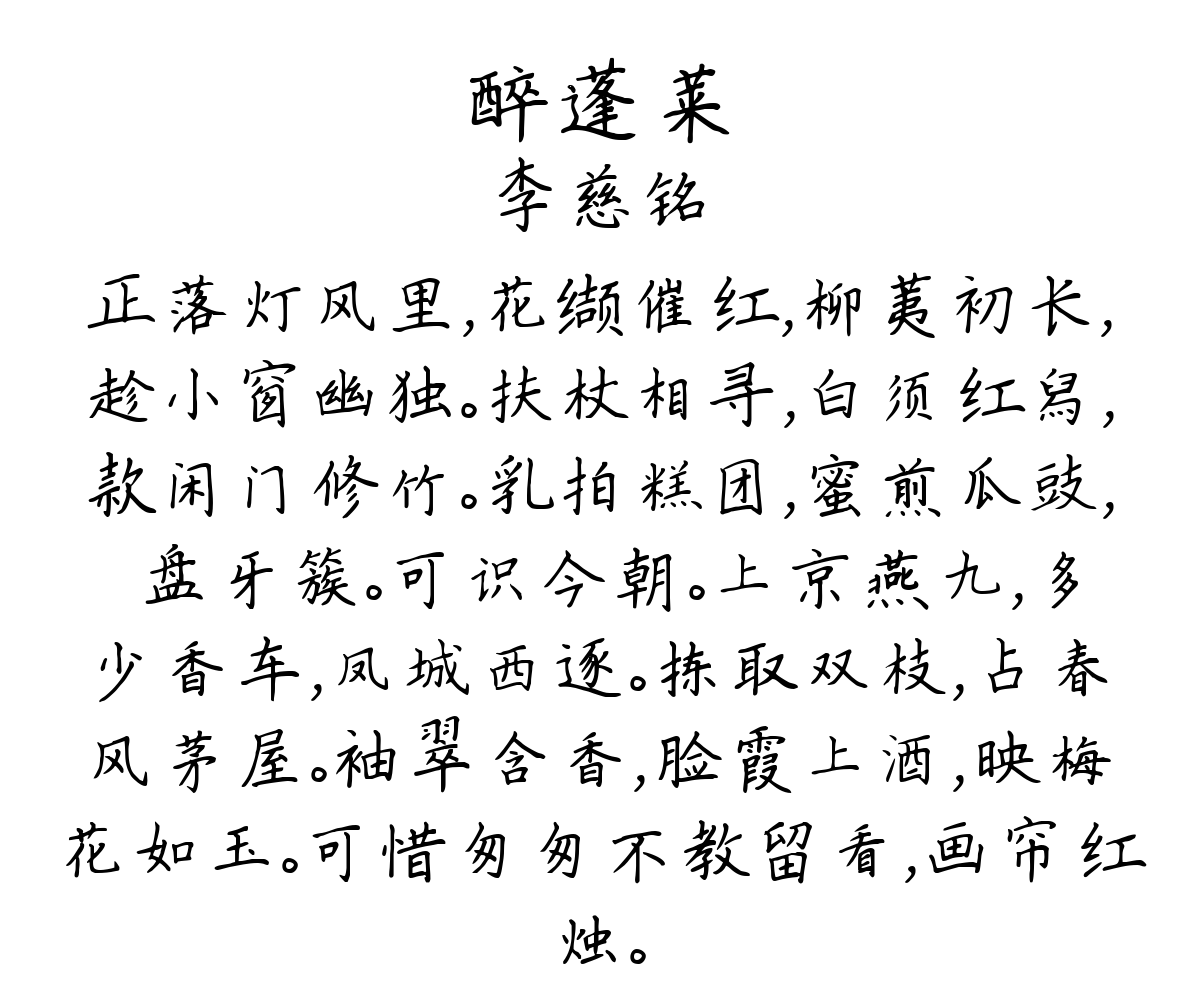 醉蓬莱
李慈铭
正落灯风里,花缬催红,柳荑初长,
趁小窗幽独。扶杖相寻,白须红舄,
款闲门修竹。乳拍糕团,蜜煎瓜豉,
盘牙簇。可识今朝。上京燕九,多
少香车,凤城西逐。拣取双枝,占春
风茅屋。袖翠含香,脸霞上酒,映梅
花如玉。可惜匆匆不教留看,画帘红
烛。